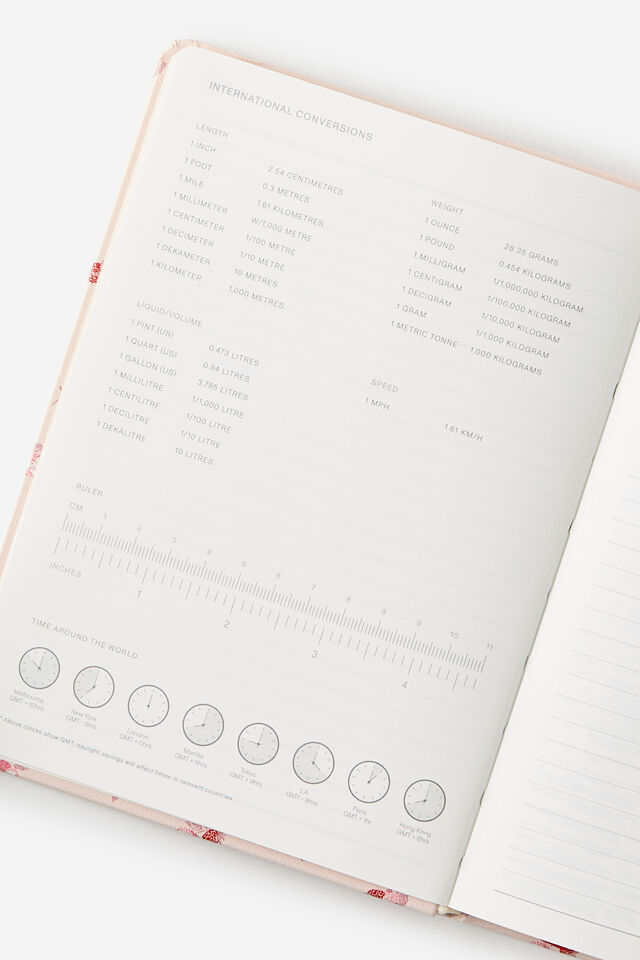 INTERNATIONAL CONVERSIONS
LENGTH
1 INCH 2.54 CENTIMETRES
1 FOOT 0.3 METRES
1 MILE 1.61 KILOMETRES
1 MILLIMETER W/1,000 METRE
1 CENTIMETER 1/100 METRE
1 DECIMETER 1/10 METRE
1 DEKAMETER 10 METRES
1 KILOMETER 1,000 METRES
WEIGHT
1 OUNCE 28.35 GRAMS
1 POUND 0.454 KILOGRAMS
1 MILLIGRAM 1/1,000,000 KILOGRAM
1 CENTIGRAM 1/100,000 KILOGRAM
1 DECIGRAM 1/10,000 KILOGRAM
1 GRAM 1/1,000 KILOGRAM
1 METRIC TONNE 1,000 KILOGRAMS
LIQUID/VOLUME
1 PINT (US) 0.473 LITRES
1 QUART (US) 0.94 LITRES
1 GALLON (US) 3.785 LITRES
1 MILLILITRE 1/1,000 LITRE
1 CENTILITRE 1/100 LITRE
1 DECILITRE 1/10 LITRE
1 DEKALITRE 10 LITRES
SPEED
1 MPH 1.61 KM/H
RULER
CM
1 2 3 4 5 6 7 8 9 10 11
INCHES
1 2 3 4
TIME AROUND THE WORLD
Melbourne
GMT + 10hrs
New York
GMT - 5hrs
London
GMT + 0hrs
Manilla
GMT + 8hrs
Tokyo
GMT + 9hrs
LA
GMT - 8hrs
Paris
GMT + 1hr
Hong Kong
GMT + 8hrs
* Above clocks show GMT, daylight savings will effect times in relevant countries.